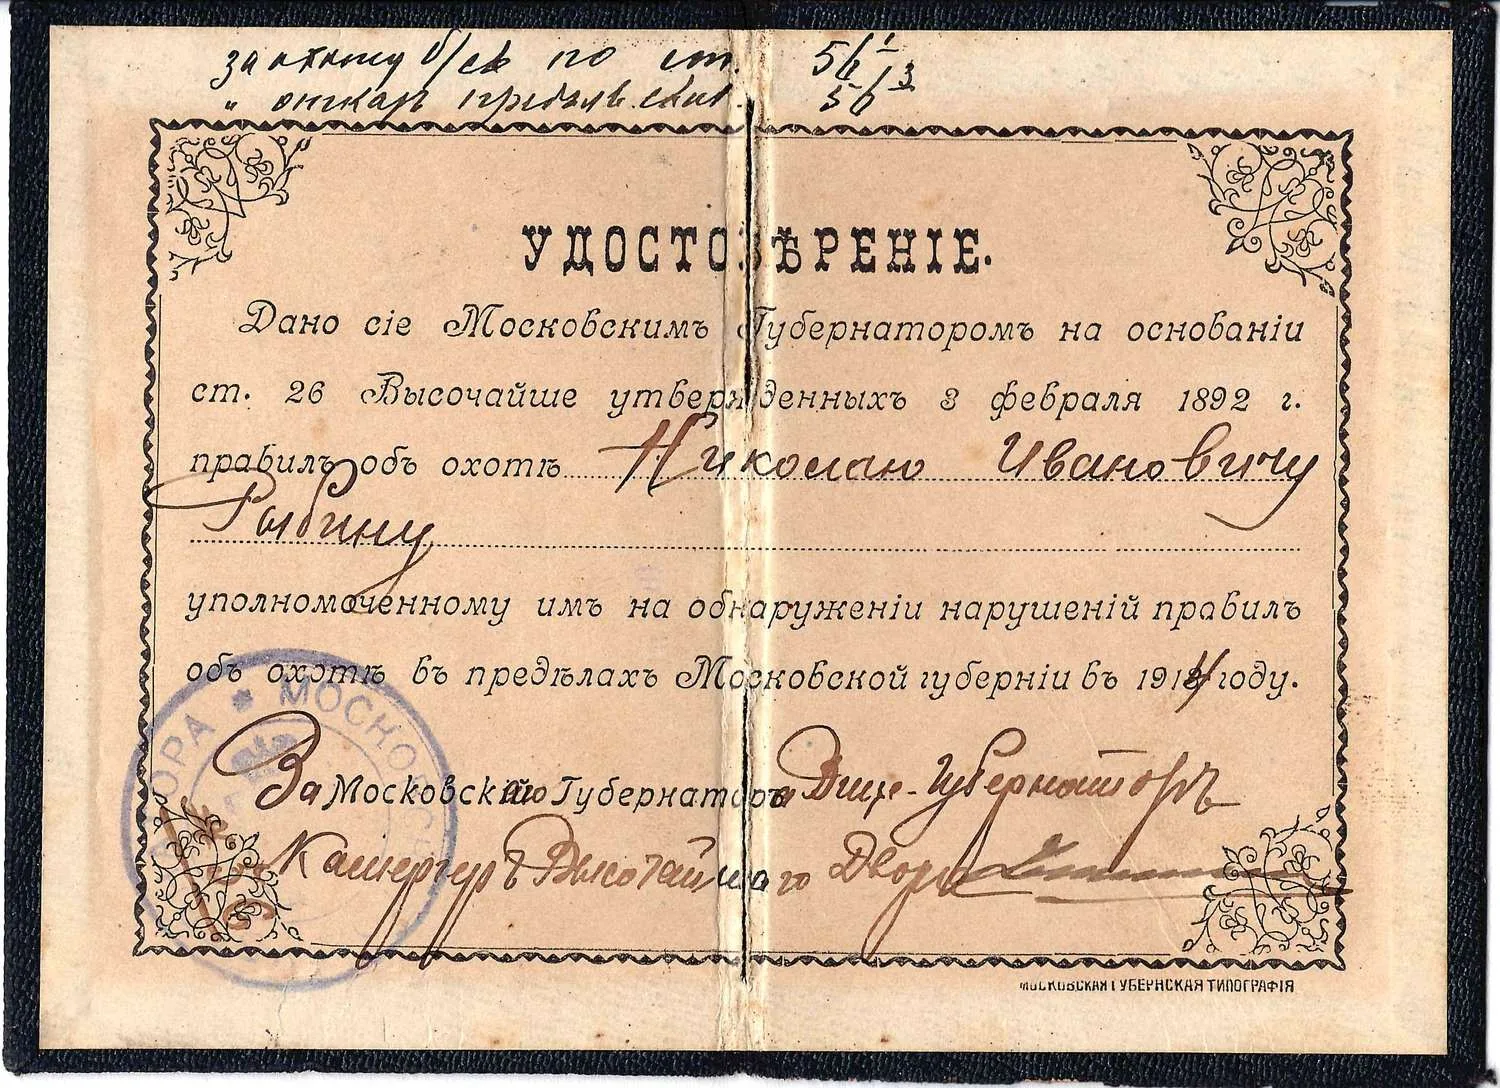 за охоту б/св по ст. 56¹
" 56³
УДОСТОВѢРЕНІЕ.
Дано сіе Московскимъ Губернаторомъ на основаніи
ст. 26 Высочайше утвержденныхъ 3 февраля 1892 г.
правилъ объ охотѣ Николаю Ивановичу
Рыбину
уполномоченному имъ на обнаруженіи нарушеній правилъ
объ охотѣ въ предѣлахъ Московской губерніи въ 1914 году.
За Московскаго Губернатора Вице-Губернаторъ
Камергеръ Высочайшаго Двора
МОСКОВСКАЯ ГУБЕРНСКАЯ ТИПОГРАФІЯ